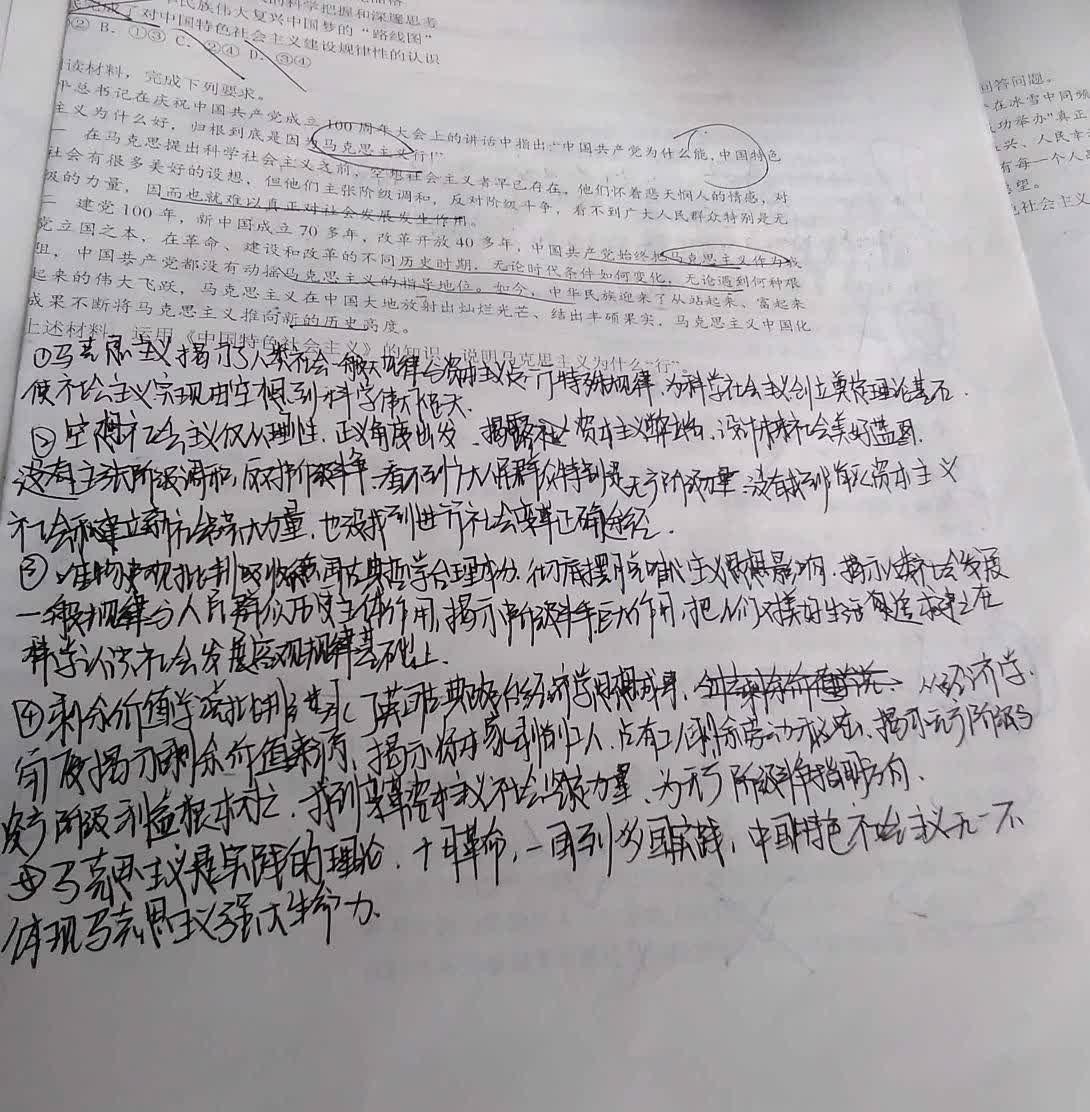 的科学把握和深邃思考
民族伟大复兴中国梦的“路线图”
了对中国特色社会主义建设规律性的认识
② B. ①③ C. ②④ D. ③④
读材料，完成下列要求。
平总书记在庆祝中国共产党成立100周年大会上的讲话中指出：“中国共产党为什么能，中国特色
主义为什么好，归根到底是因为马克思主义行！”
一 在马克思提出科学社会主义之前，空想社会主义者早已存在，他们怀着悲天悯人的情感，对
社会有很多美好的设想，但他们主张阶级调和，反对阶级斗争，看不到广大人民群众特别是无
级的力量，因而也就难以真正对社会发展发生作用。
二 建党100年，新中国成立70多年，改革开放40多年，中国共产党始终把马克思主义作为我
党立国之本，在革命、建设和改革的不同历史时期，无论时代条件如何变化，无论遇到何种艰
阻，中国共产党都没有动摇马克思主义的指导地位。如今，中华民族迎来了从站起来、富起来
起来的伟大飞跃，马克思主义在中国大地放射出灿烂光芒、结出丰硕果实，马克思主义中国化
成果不断将马克思主义推向新的历史高度。
上述材料，运用《中国特色社会主义》的知识，说明马克思主义为什么“行”。
①马克思主义揭示了人类社会一般规律台资本主义 特殊规律,为科学社会主义创立奠定理论基石.
使社会主义实现由空想到科学伟大飞跃.
②空想社会主义仅从理性.正义角度出发.揭露 资本主义弊端.设计未来社会美好蓝图.
没有主张阶级调和,反对阶级斗争.看不到广大人民群众特别是无产阶级力量.没有找到 资本主义
社会和建立新社会 力量,也没找到进行社会变革正确途径.
③唯物史观批判吸收德国古典哲学合理成分.彻底摆脱唯心主义 影响.揭示人类社会发展
一般规律与人民群众历史主体作用,揭示阶级斗争巨大作用.把人们对美好生活 建立在
科学认识社会发展客观规律基础上.
④剩余价值学说批判 了英国古典政治经济学 成果, 从经济学
角度揭示剩余价值来源,揭示资本家剥削工人.占有工人剩余劳动 .揭示无产阶级与
资产阶级利益根本对立.找到变革资本主义社会 力量.为无产阶级斗争指明方向.
⑤马克思主义是实践的理论.十月革命,一国到多国实践,中国特色 主义无一不
体现马克思主义强大生命力.
回答问题。
在冰雪中同频
成功举办“真正
共、人民幸
有每一个人
希望。
社会主义